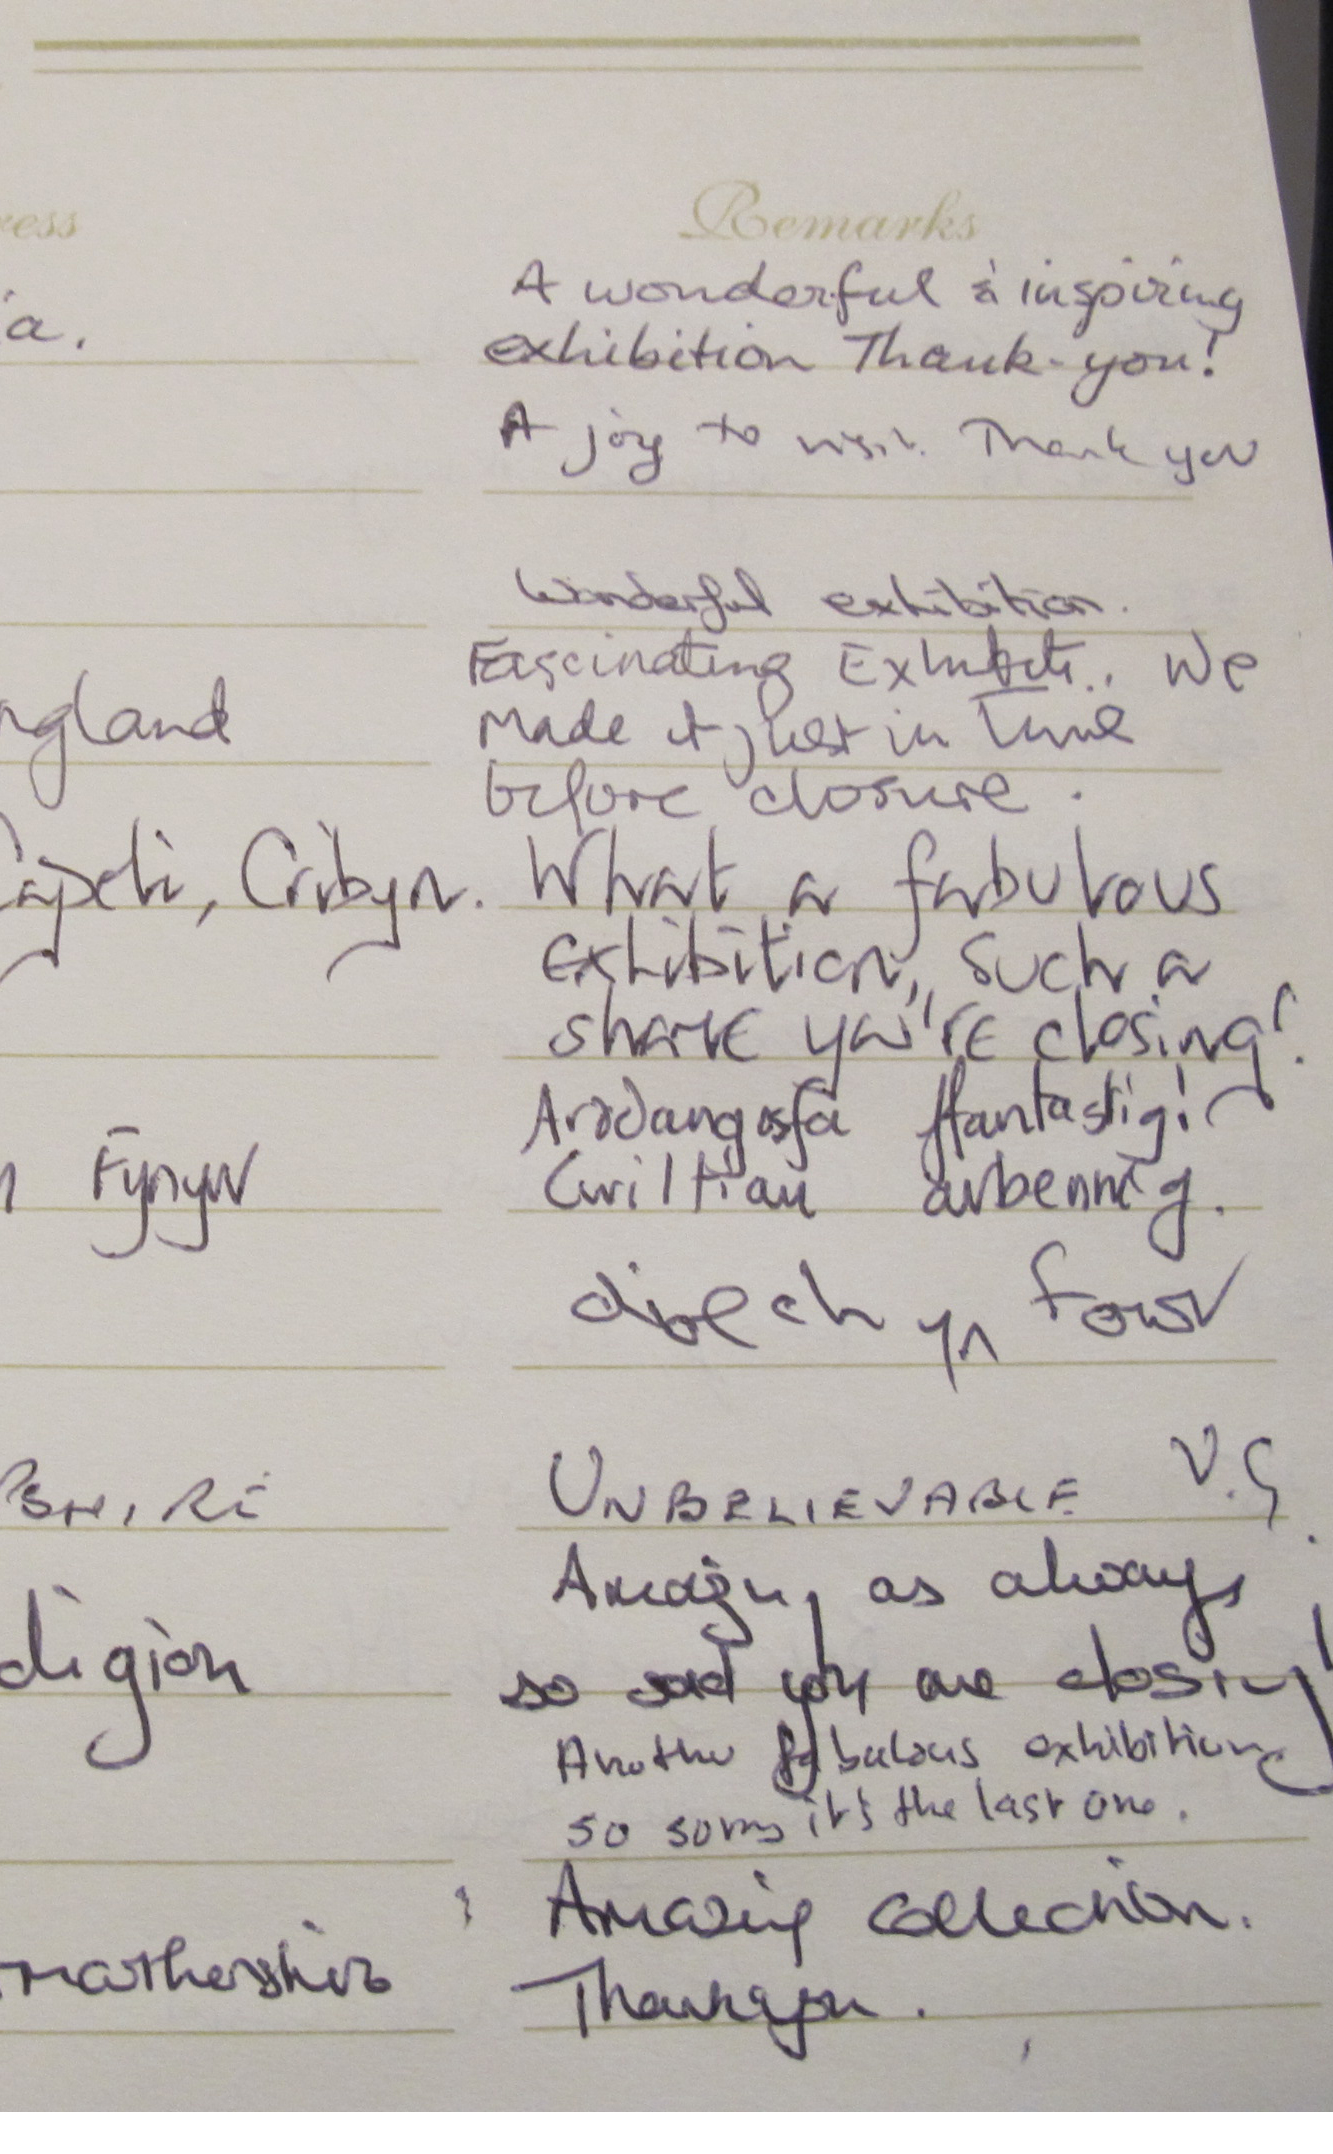 ress Remarks
a. A wonderful & inspiring
exhibition Thank-you!
A joy to visit. Thank you
Wonderful exhibition.
Fascinating Exhibits. We
ngland made it just in Time
before closure.
Capeli, Cribyn. What a fabulous
exhibition, such a
shame you're closing!
Arddangosfa ffantastig!
n Fynyw Cwiltiau arbennig.
diolch yn fawr
SHIRE UNBELIEVABLE V.G.
Amazing as always
digion so sad you are closing!
Another fabulous exhibition
so sorry it's the last one.
Amazing collection.
marthenshire Thankyou.